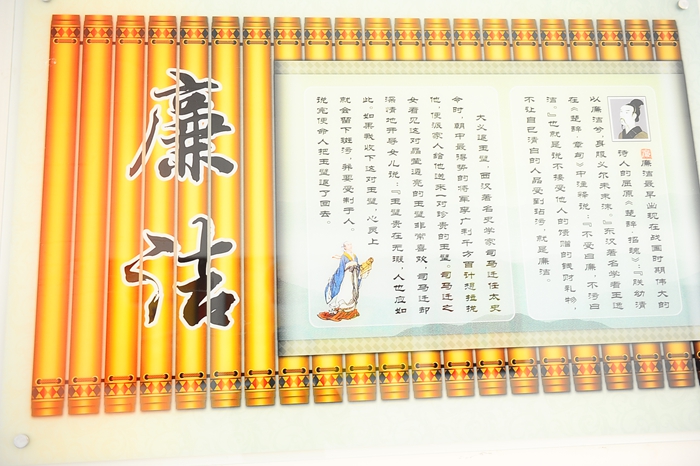 廉洁
廉洁最早出现在战国时期伟大的
诗人的屈原《楚辞·招魂》:『朕幼清
以廉洁兮,身服义尔未沫。』东汉著名学者王逸
在《楚辞·章句》中注释说:『不受曰廉,不污曰
洁。』也就是说不接受他人的馈赠的钱财礼物,
不让自己清白的人品受到玷污,就是廉洁。
大义退玉璧。西汉著名史学家司马迁任太史
令时,朝中最得势的将军李广利千方百计想拉拢
他,便派家人给他送来一对珍贵的玉璧。司马迁之
女看见这对晶莹透亮的玉璧非常喜欢,司马迁却
深情地开导女儿说:『玉璧贵在无瑕,人也应如
此。如果我收下这对玉璧,心灵上
就会留下斑污,并要受制于人。
说完便命人把玉璧退了回去。